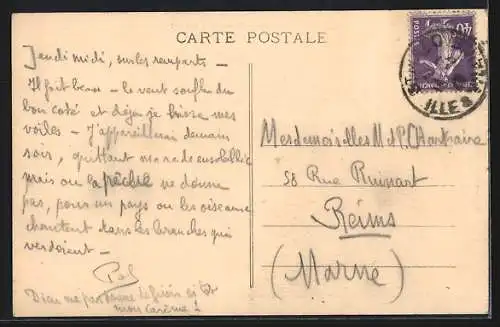 CARTE POSTALE
Jeudi midi, sur les remparts -
Il fait beau - le vent souffle du
bon coté et déjà je hisse mes
voiles - J'appareillerai demain
soir, quittant ma rade ensoleillée
mais ou la pêche ne donne
pas, pour un pays ou les oiseaux
chantent dans les branches qui
verdoient -
Dieu me pardonne
mon carême !
Mesdemoiselles M et P
58 Rue Ruinart
Reims
(Marne)
POSTES
40
ILLE